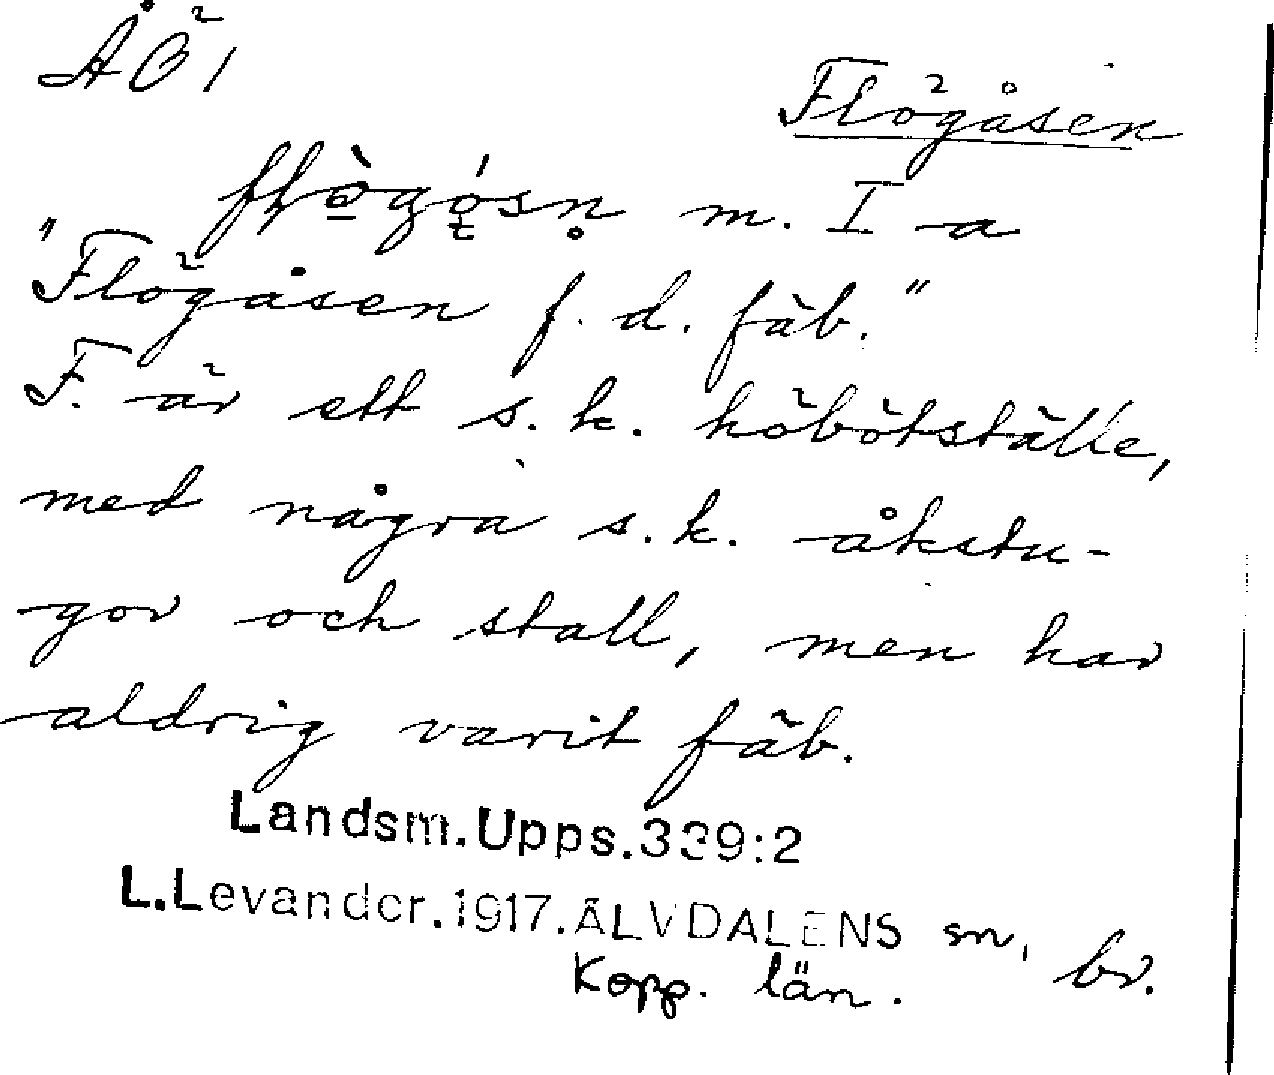 ÅÖ1
Flögåsen
m. I a
"Flögåsen f. d. fäb."
F. är ett s.k. höbötställe,
med några s.k. åkstu-
gor och stall, men har
aldrig varit fäb.
Landsm.Upps.339:2
L.Levander.1917.ÄLVDALENS sn, br.
Kopp. län.